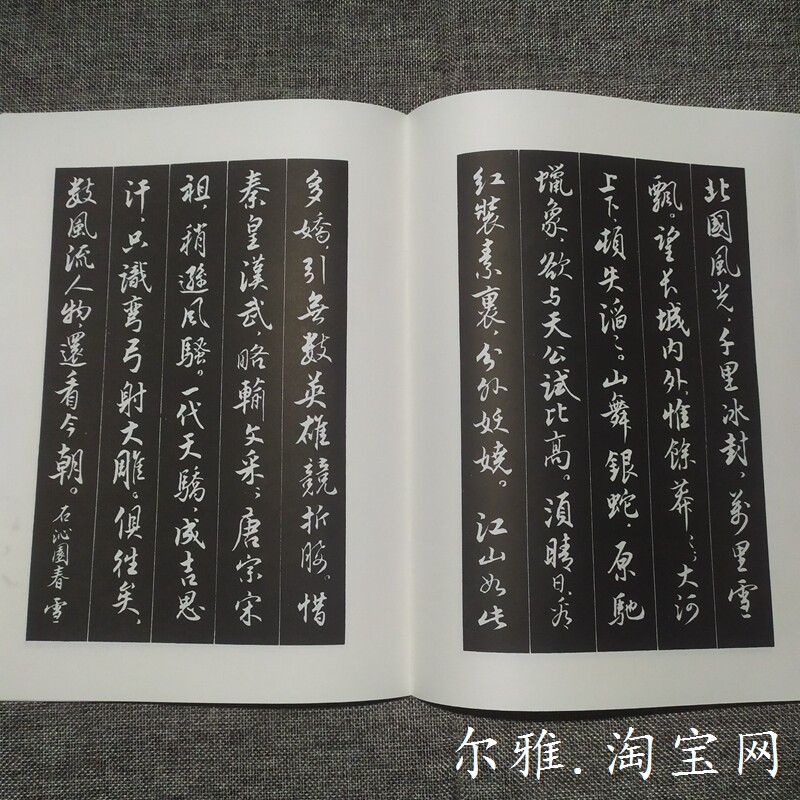 北國風光，千里冰封，萬里雪
飄。望长城内外，惟餘莽〻；大河
上下，頓失滔〻。山舞銀蛇，原馳
蠟象，欲与天公試比高。須晴日，看
红裝素裹，分外妖嬈。江山如此
多嬌，引無數英雄競折腰。惜
秦皇漢武，略輸文采；唐宗宋
祖，稍遜风騷。一代天驕，成吉思
汗，只識彎弓射大雕。俱往矣，
數風流人物，還看今朝。右沁園春雪
尔雅.淘宝网